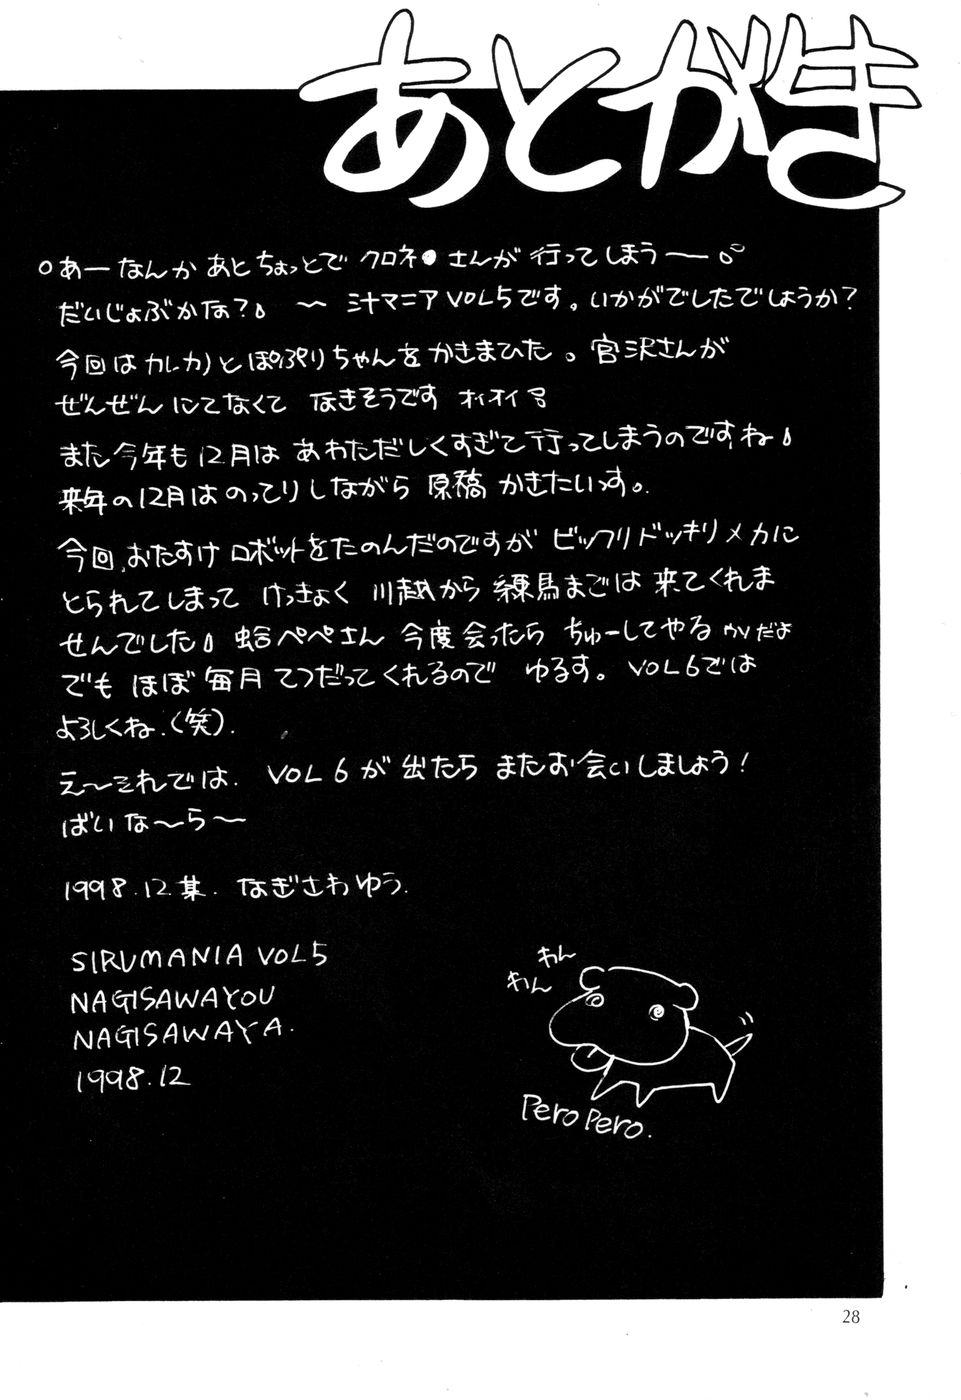 あとがき
あーなんか あと ちょっとで クロネ●さんが 行ってしまうー
だいじょぶかな? 〜 汁マニア VOL5です。いかがでしたでしょうか?
今回は カレカノと ぽぷりちゃんを かきまひた。宮沢さんが
ぜんぜん にてなくて なきそうです オイオイ
また今年も12月は あわただしくすぎて行ってしまうのですね
来年の12月はのってりしながら 原稿 かきたいっす。
今回、おたすけ ロボットをたのんだのですが ビックリドッキリメカに
とられてしまって けっきょく 川越から 練馬まごは 来てくれま
せんでした 蛤ぺぺさん 今度会ったら ちゅーしてやる ウソだよ
でも ほぼ毎月 てつだってくれるので ゆるす。VOL6では
よろしくね.(笑).
え〜それでは. VOL6が 出たら またお会いしましょう!
ばいな〜ら〜
1998.12.某. なぎさわゆう.
SIRUMANIA VOL5
NAGISAWAYOU
NAGISAWAYA.
1998.12
わん
わん
Pero Pero.
28